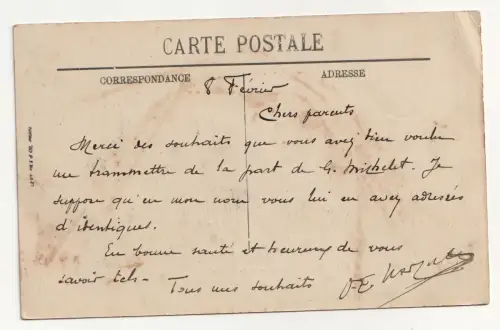 CARTE POSTALE
CORRESPONDANCE
ADRESSE
8 Février
Chers parents
Merci des souhaits que vous avez bien voulu
me transmettre de la part de G. Michelet. Je
suppose qu'en mon nom vous lui en avez adressés
d'identiques.
En bonne santé et heureux de vous
savoir tels-
Tous mes souhaits